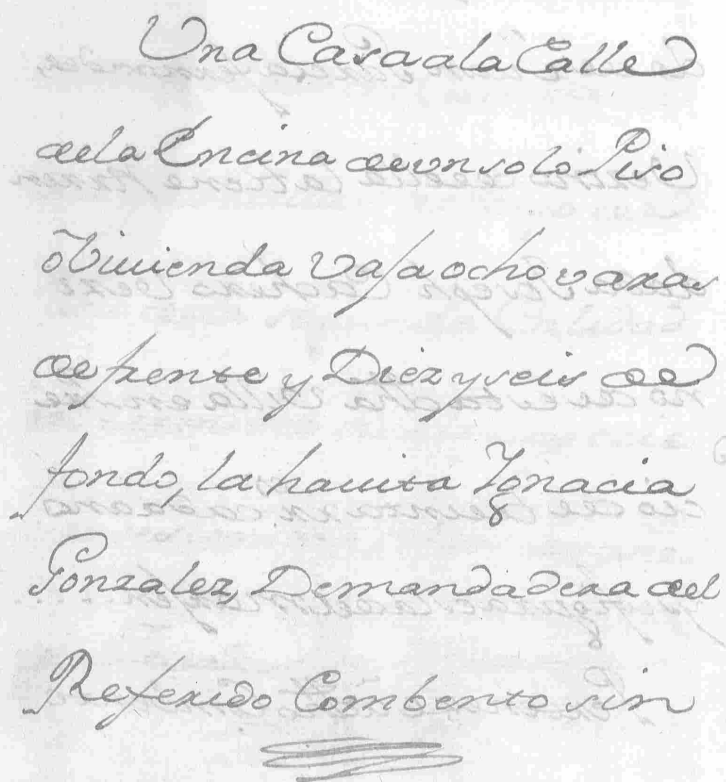 Una Casa a la Calle
de la Encina de un solo Piso
ô Vivienda Vaja ocho varas
de frente y Diez y seis de
fondo, la havita Ignacia
Gonzalez, Demandadera del
Referido Combento sin